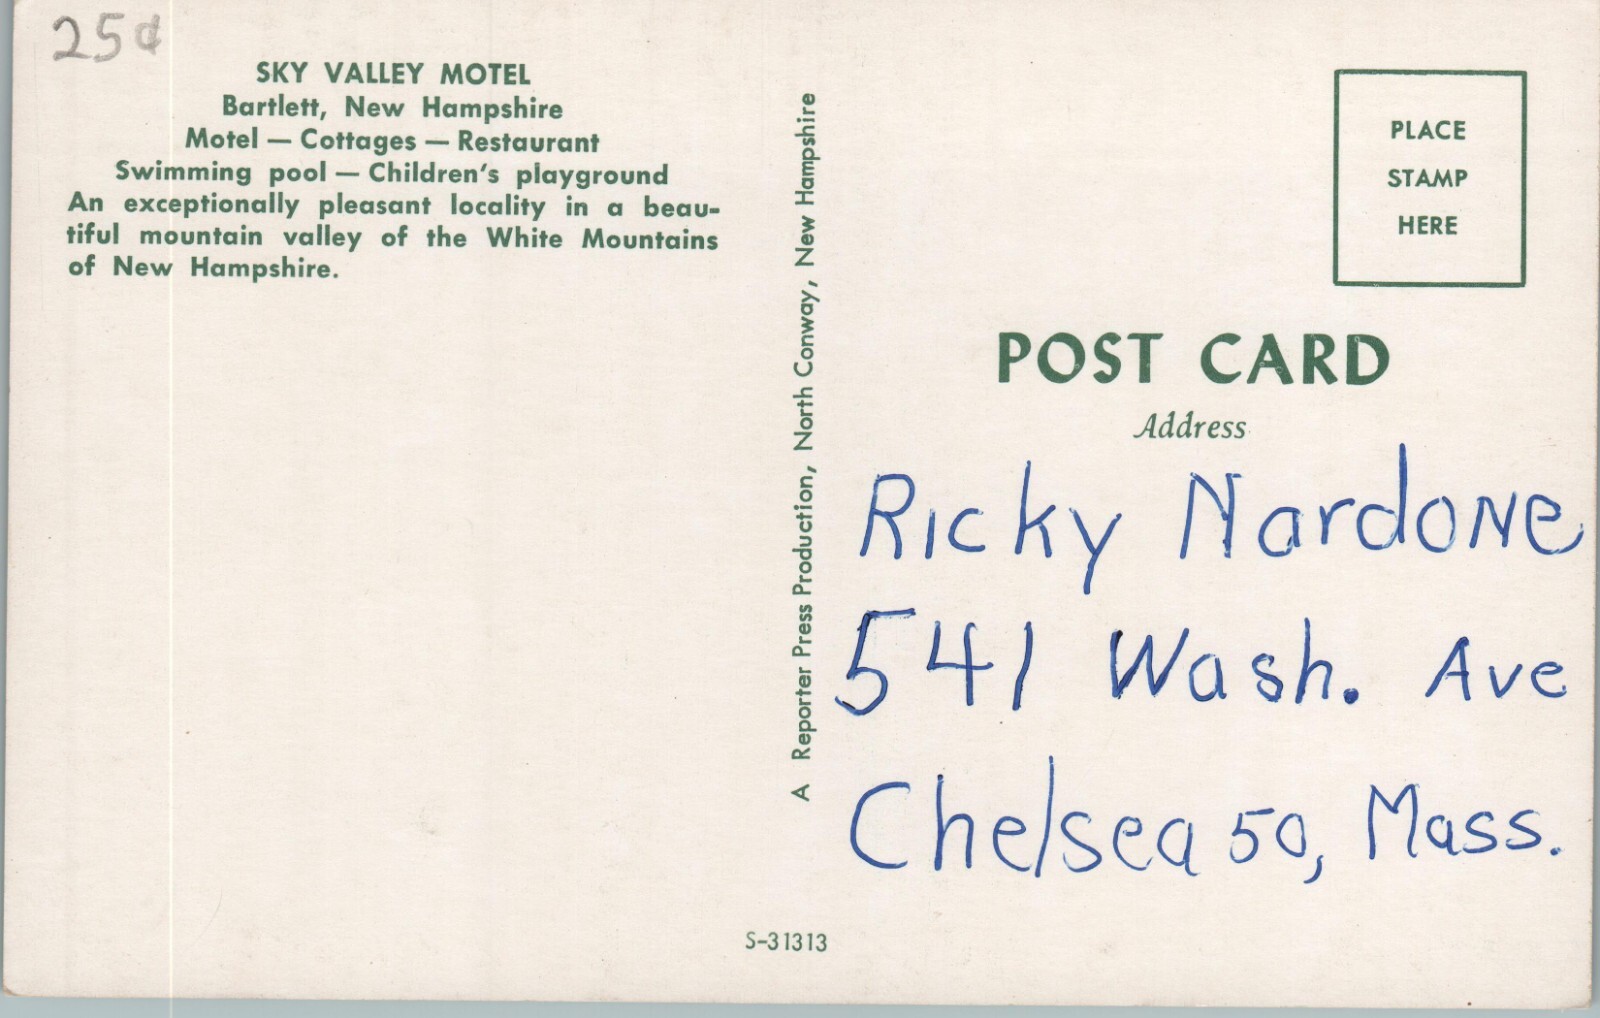 25¢
SKY VALLEY MOTEL
Bartlett, New Hampshire
Motel — Cottages — Restaurant
Swimming pool — Children's playground
An exceptionally pleasant locality in a beau-
tiful mountain valley of the White Mountains
of New Hampshire.
A Reporter Press Production, North Conway, New Hampshire
S-31313
PLACE
STAMP
HERE
POST CARD
Address
Ricky Nardone
541 Wash. Ave
Chelsea 50, Mass.